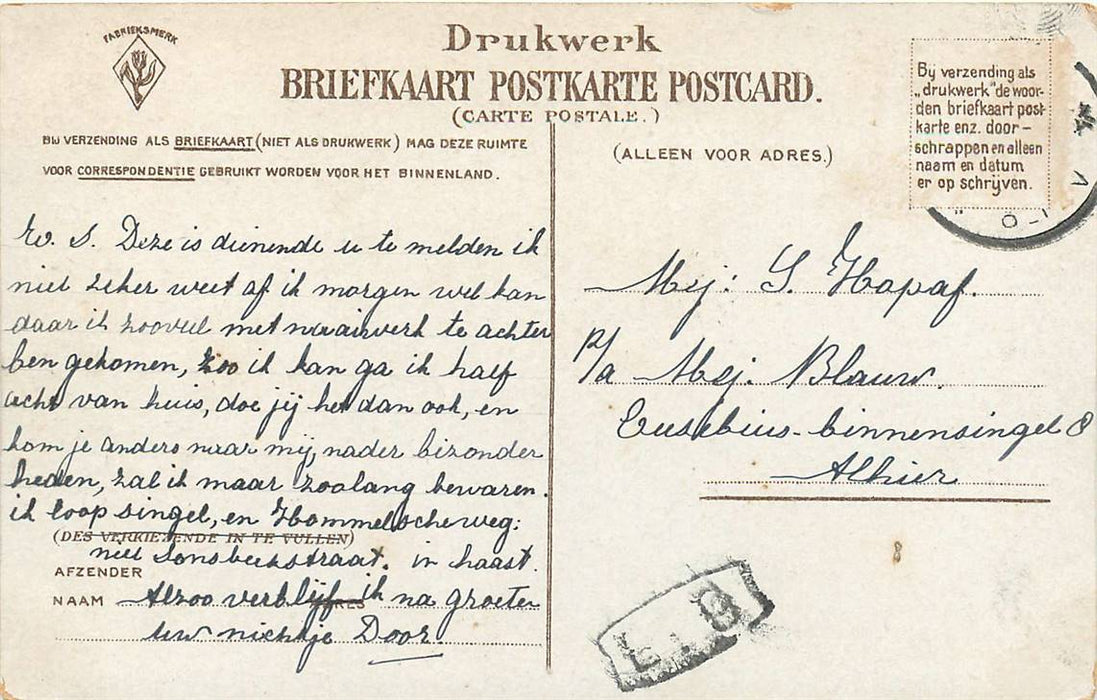 FABRIEKSMERK
Drukwerk
BRIEFKAART POSTKARTE POSTCARD.
(CARTE POSTALE.)
BIJ VERZENDING ALS BRIEFKAART (NIET ALS DRUKWERK) MAG DEZE RUIMTE
VOOR CORRESPONDENTIE GEBRUIKT WORDEN VOOR HET BINNENLAND.
(ALLEEN VOOR ADRES.)
By verzending als
„drukwerk" de woor-
den briefkaart post-
karte enz. door-
schrappen en alleen
naam en datum
er op schryven.
S. Deze is dienende u te melden ik
niet zeker weet af ik morgen wel kan
daar ik zooveel met naaiwerk te achter
ben gekomen, zoo ik kan ga ik half
acht van huis, doe jij het dan ook, en
kom je anders naar mij, nader bizonder
heden, zal ik maar zoolang bewaren.
ik loop singel, en Hommelscheweg:
(DES VERKIEZENDE IN TE VULLEN)
niet Sonsbeekstraat. in haast.
AFZENDER
NAAM Alzoo verblijf ik na groeten
ADRES
uw nichtje Door.
Mej: S. Hopaf.
p/a Mej. Blauw.
Eusebius-binnensingel 8
Alhier